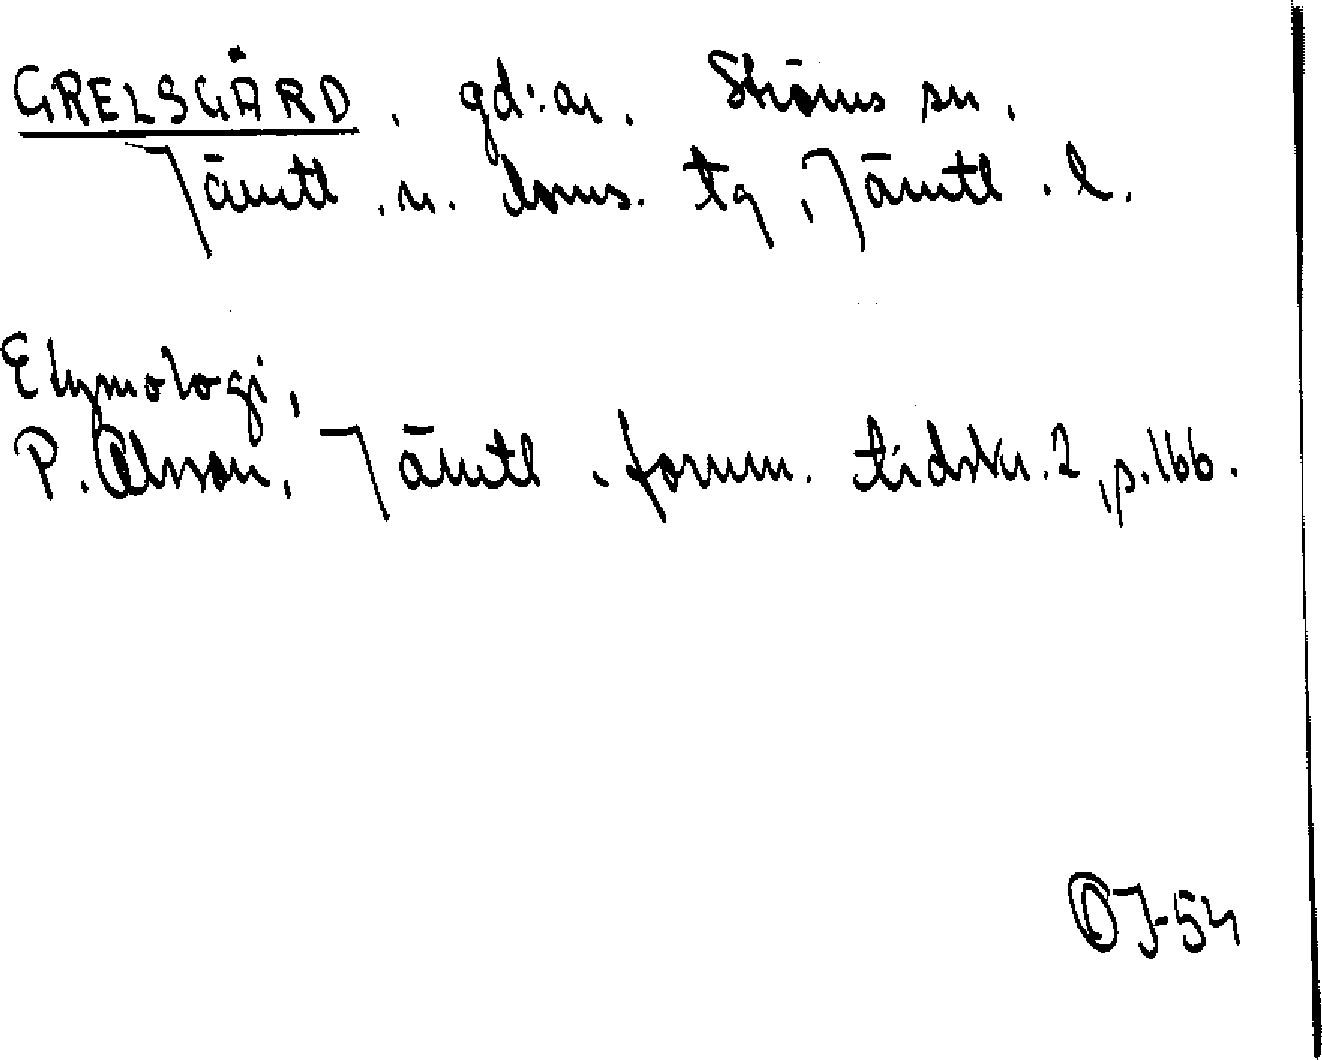 GRELSGÅRD, gd:ar. Ströms sn.
Jämtl. n. doms. tg, Jämtl. l.
Etymologi,
P. Olsson, Jämtl. fornm. tidskr. 2, p. 166.
OJ-54